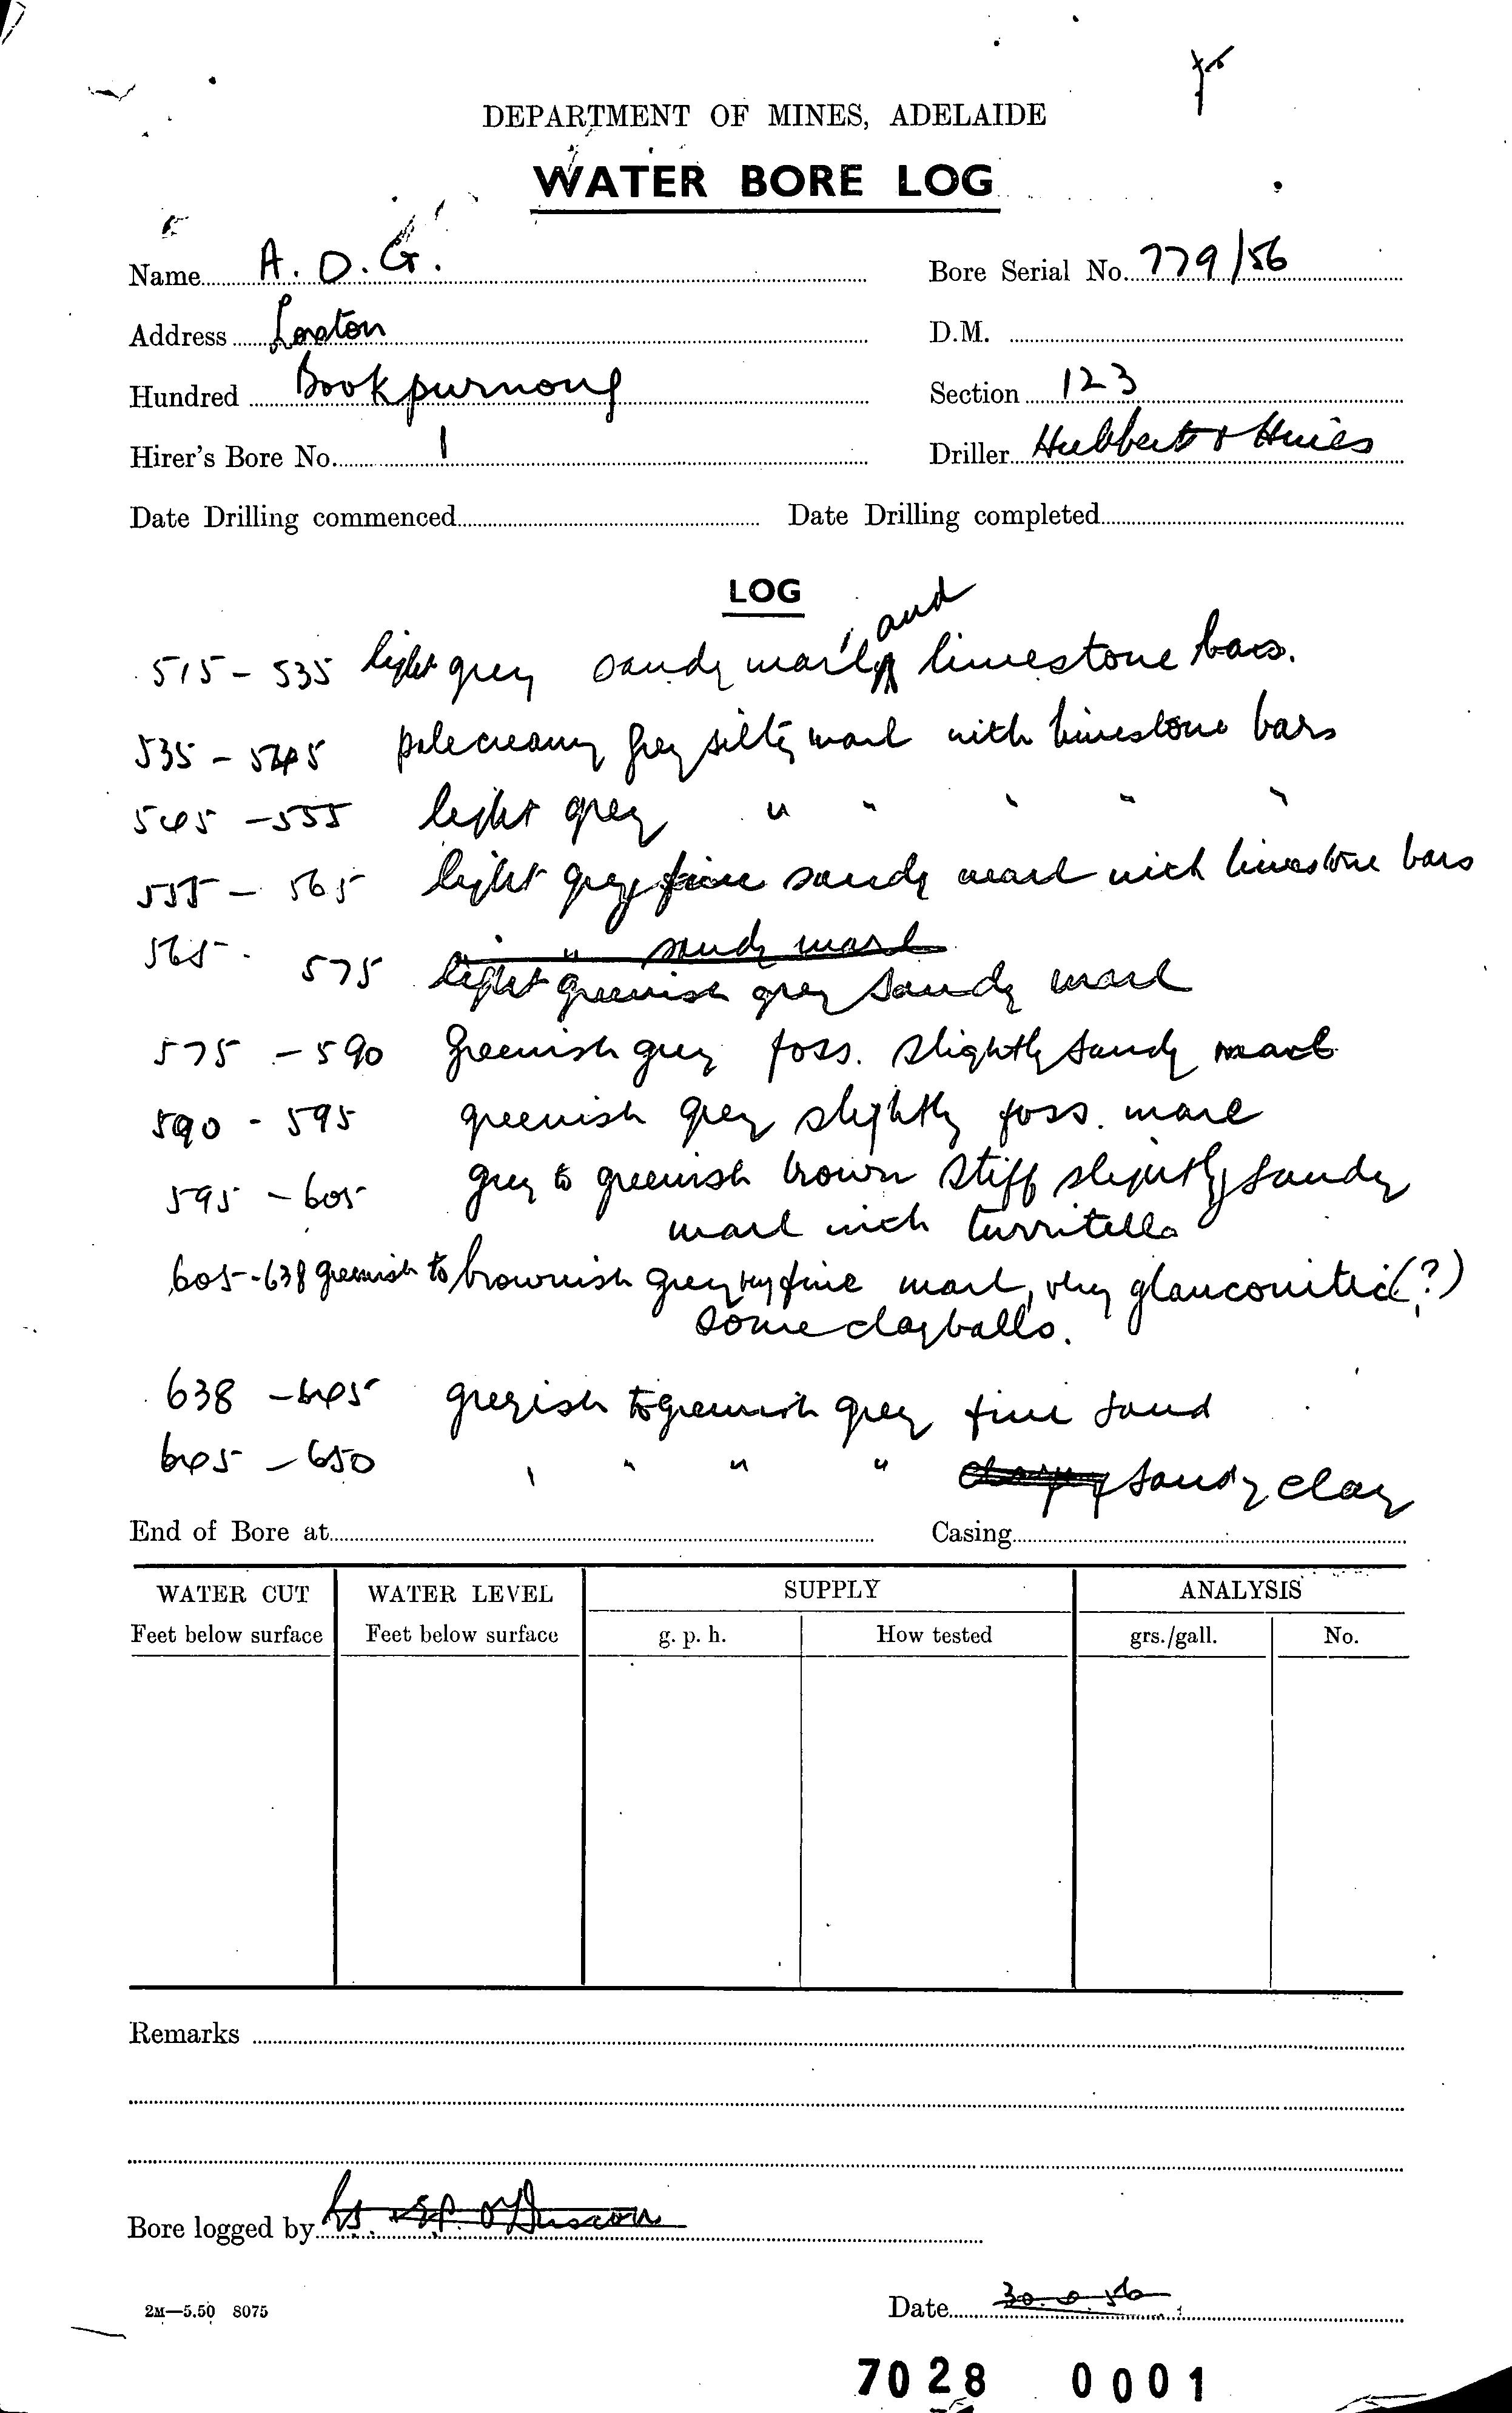 DEPARTMENT OF MINES, ADELAIDE
WATER BORE LOG
Name A. O. G. Bore Serial No. 779/56
Address Loxton D.M.
Hundred Bookpurnong Section 123
Hirer's Bore No. 1 Driller Hubbert & Huies
Date Drilling commenced Date Drilling completed
LOG
and
515 - 535 light grey sandy marl limestone bars.
535 - 545 pale creamy grey silty marl with limestone bars
545 - 555 light grey " " " " "
555 - 565 light grey fine sandy marl with limestone bars
" sandy marl
565 - 575 light greenish grey sandy marl
575 - 590 Greenish grey foss. slightly sandy marl
590 - 595 greenish grey slightly foss. marl
595 - 605 grey to greenish brown stiff slightly sandy
marl with turritella
605 - 638 greenish to brownish grey very fine marl, very glauconitic (?)
some clayballs.
638 - 645 greyish to greenish grey fine sand
645 - 650 " " " " sandy clay
End of Bore at Casing
WATER CUT WATER LEVEL SUPPLY ANALYSIS
Feet below surface Feet below surface g. p. h. How tested grs./gall. No.
Remarks
Bore logged by O'Driscoll
2M—5.50 8075 Date
7028 0001